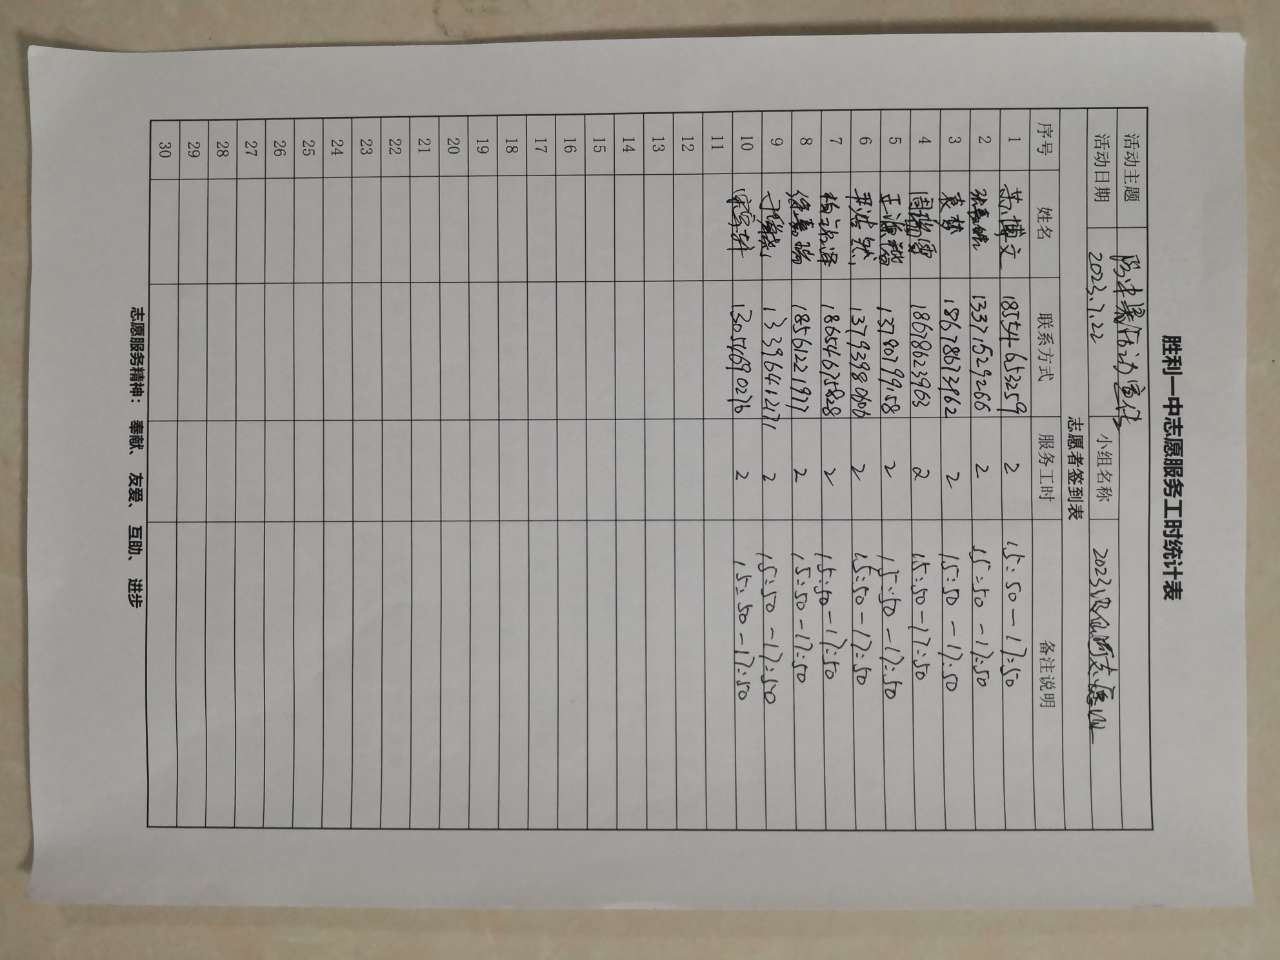 胜利一中志愿服务工时统计表
活动主题
活动日期 2023.7.22 小组名称 2023
志愿者签到表
序号 姓名 联系方式 服务工时 备注说明
1 博文 18554653259 2 15:50-17:50
2 13371529266 2 15:50-17:50
3 袁梦 18678673962 2 15:50-17:50
4 周瑞雪 18678623963 2 15:50-17:50
5 王源 13780799158 2 15:50-17:50
6 浩然 13793980606 2 15:50-17:50
7 杨 泽 18654675828 2 15:50-17:50
8 徐嘉瑞 18561221977 2 15:50-17:50
9 13396412171 2 15:50-17:50
10 宋 13054690276 2 15:50-17:50
11
12
13
14
15
16
17
18
19
20
21
22
23
24
25
26
27
28
29
30
志愿服务精神：奉献、友爱、互助、进步